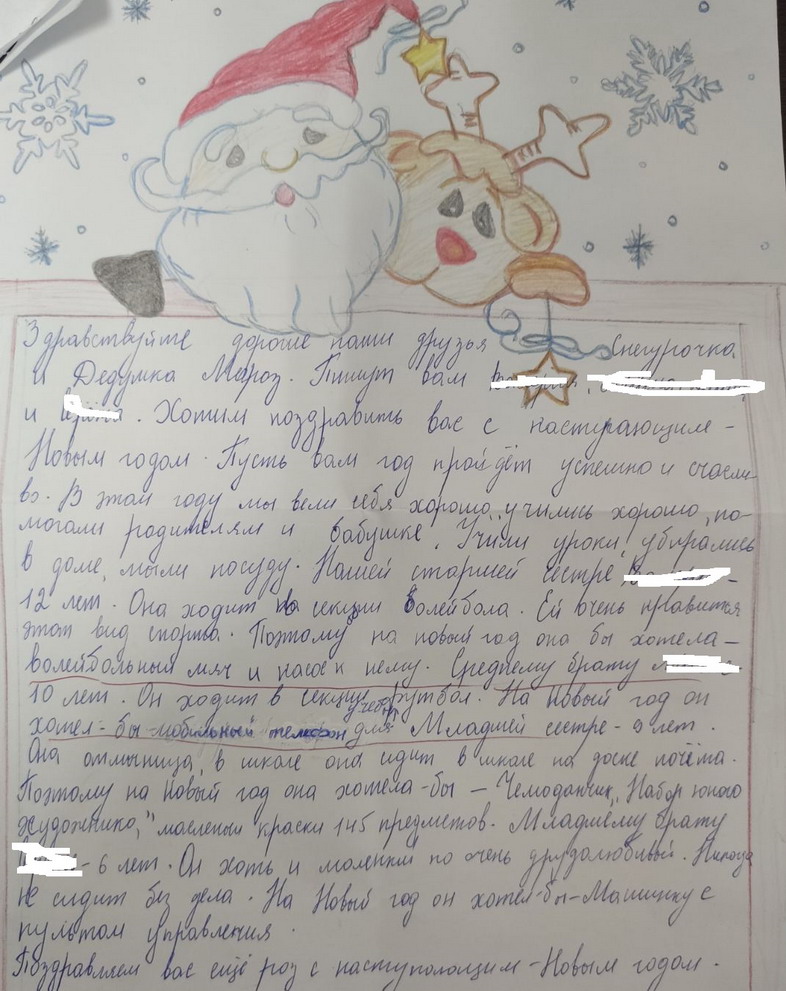 Здравствуйте дорогие наши друзья Снегурочка
и Дедушка Мороз. Пишут вам
и . Хотим поздравить вас с наступающим-
Новым годом. Пусть вам год пройдёт успешно и счасли
во. В этом году мы вели себя хорошо, учились хорошо, по-
могали родителям и бабушке. Учили уроки, убирались
в доме, мыли посуду. Нашей старшей сестре -
12 лет. Она ходит на секции волейбола. Ей очень нравится
этот вид спорта. Поэтому на новый год она бы хотела-
волейбольный мяч и насос к нему. Среднему брату
10 лет. Он ходит в секцию футбол. На Новый год он
хотел-бы мобильный телефон для учёбы Младшей сестре - 9 лет.
Она отличница, в школе она сидит в школе на доске почёта.
Поэтому на Новый год она хотела-бы - Чемоданчик, "Набор юного
художника," масленый краски 145 предметов. Младшему брату
- 6 лет. Он хоть и маленкий но очень друдолюбивый. Никогда
не сидит без дела. На Новый год он хотел-бы-Машинку с
пультом управления.
Поздравляем вас ещё роз с наступающим-Новым годом.